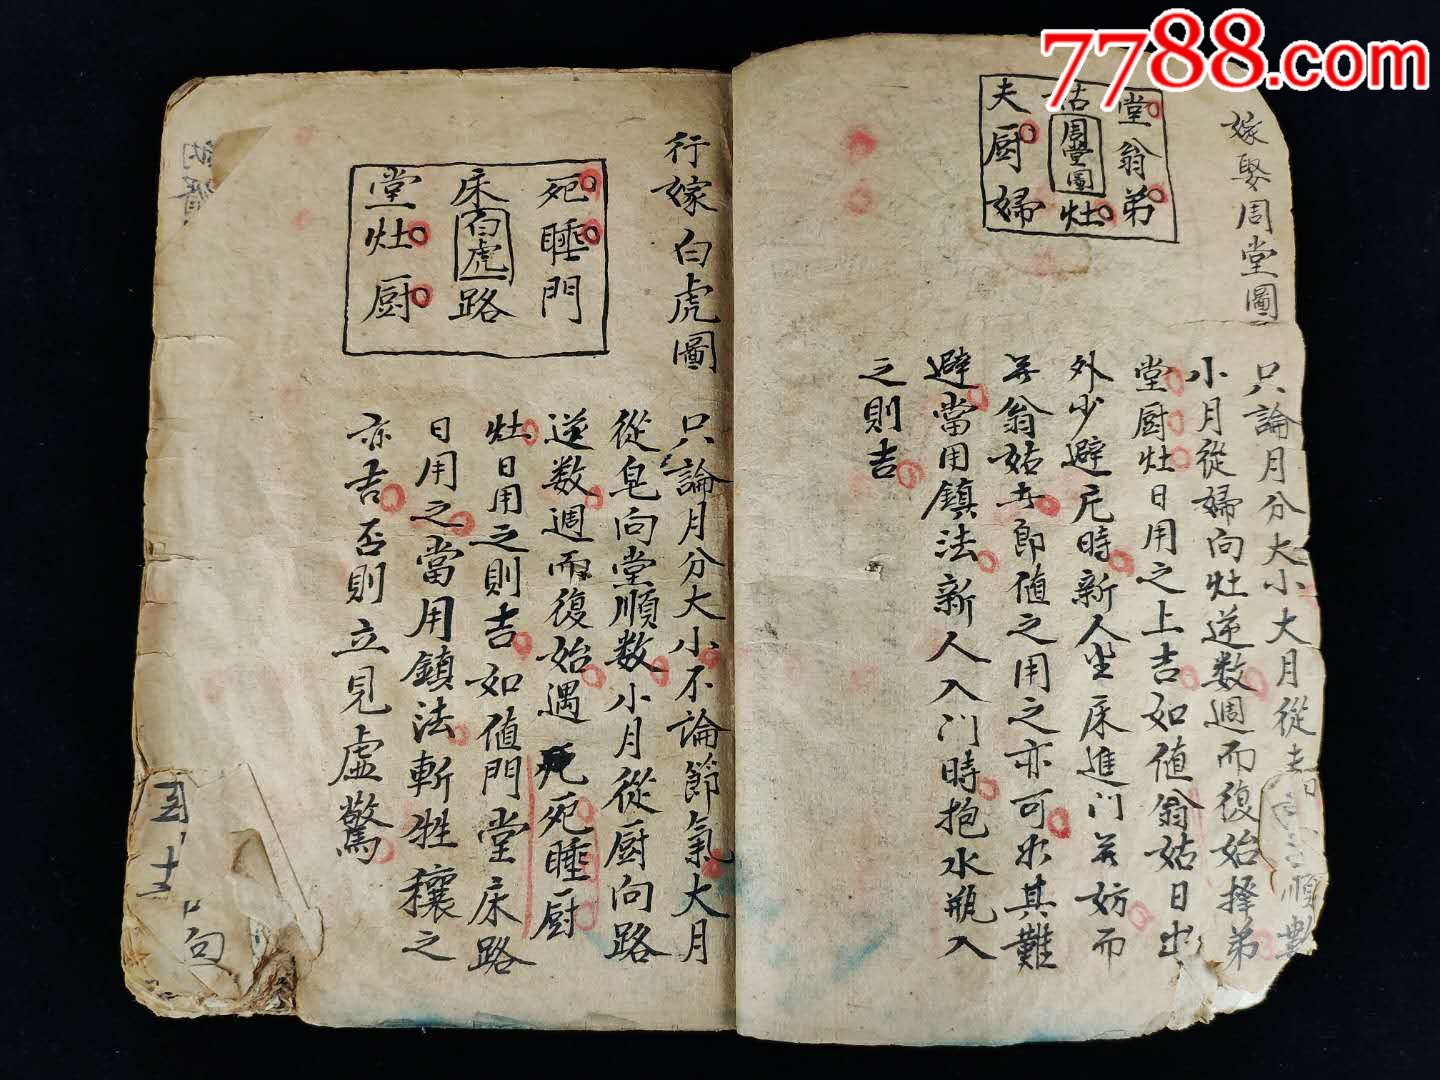 7788.com
嫁娶周堂圖
堂翁弟
姑 灶
周堂圖
夫厨婦
只論月分大小大月從 順數
小月從婦向灶逆数週而復始擇弟
堂厨灶日用之上吉如值翁姑日出
外少避凢時新人坐床進门若妨而
无翁姑此節值之用之亦可如其難
避當用鎮法新人入门時抱水瓶入
之則吉
行嫁白虎圖
死睡門
床 路
白虎
堂灶厨
只論月分大小不論節氣大月
從皂向堂順数小月從厨向路
逆数週而復始遇死睡厨
灶日用之則吉如值門堂床路
日用之當用鎮法斬牲穰之
亦吉否則立見虚驚